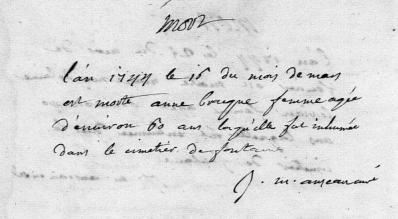 mort
l'an 1744 le 16 du mois de mars
est morte anne bouque femme agée
d'environ 60 ans laquelle fut inhumée
dans le cimetier de fontaine
j. m.